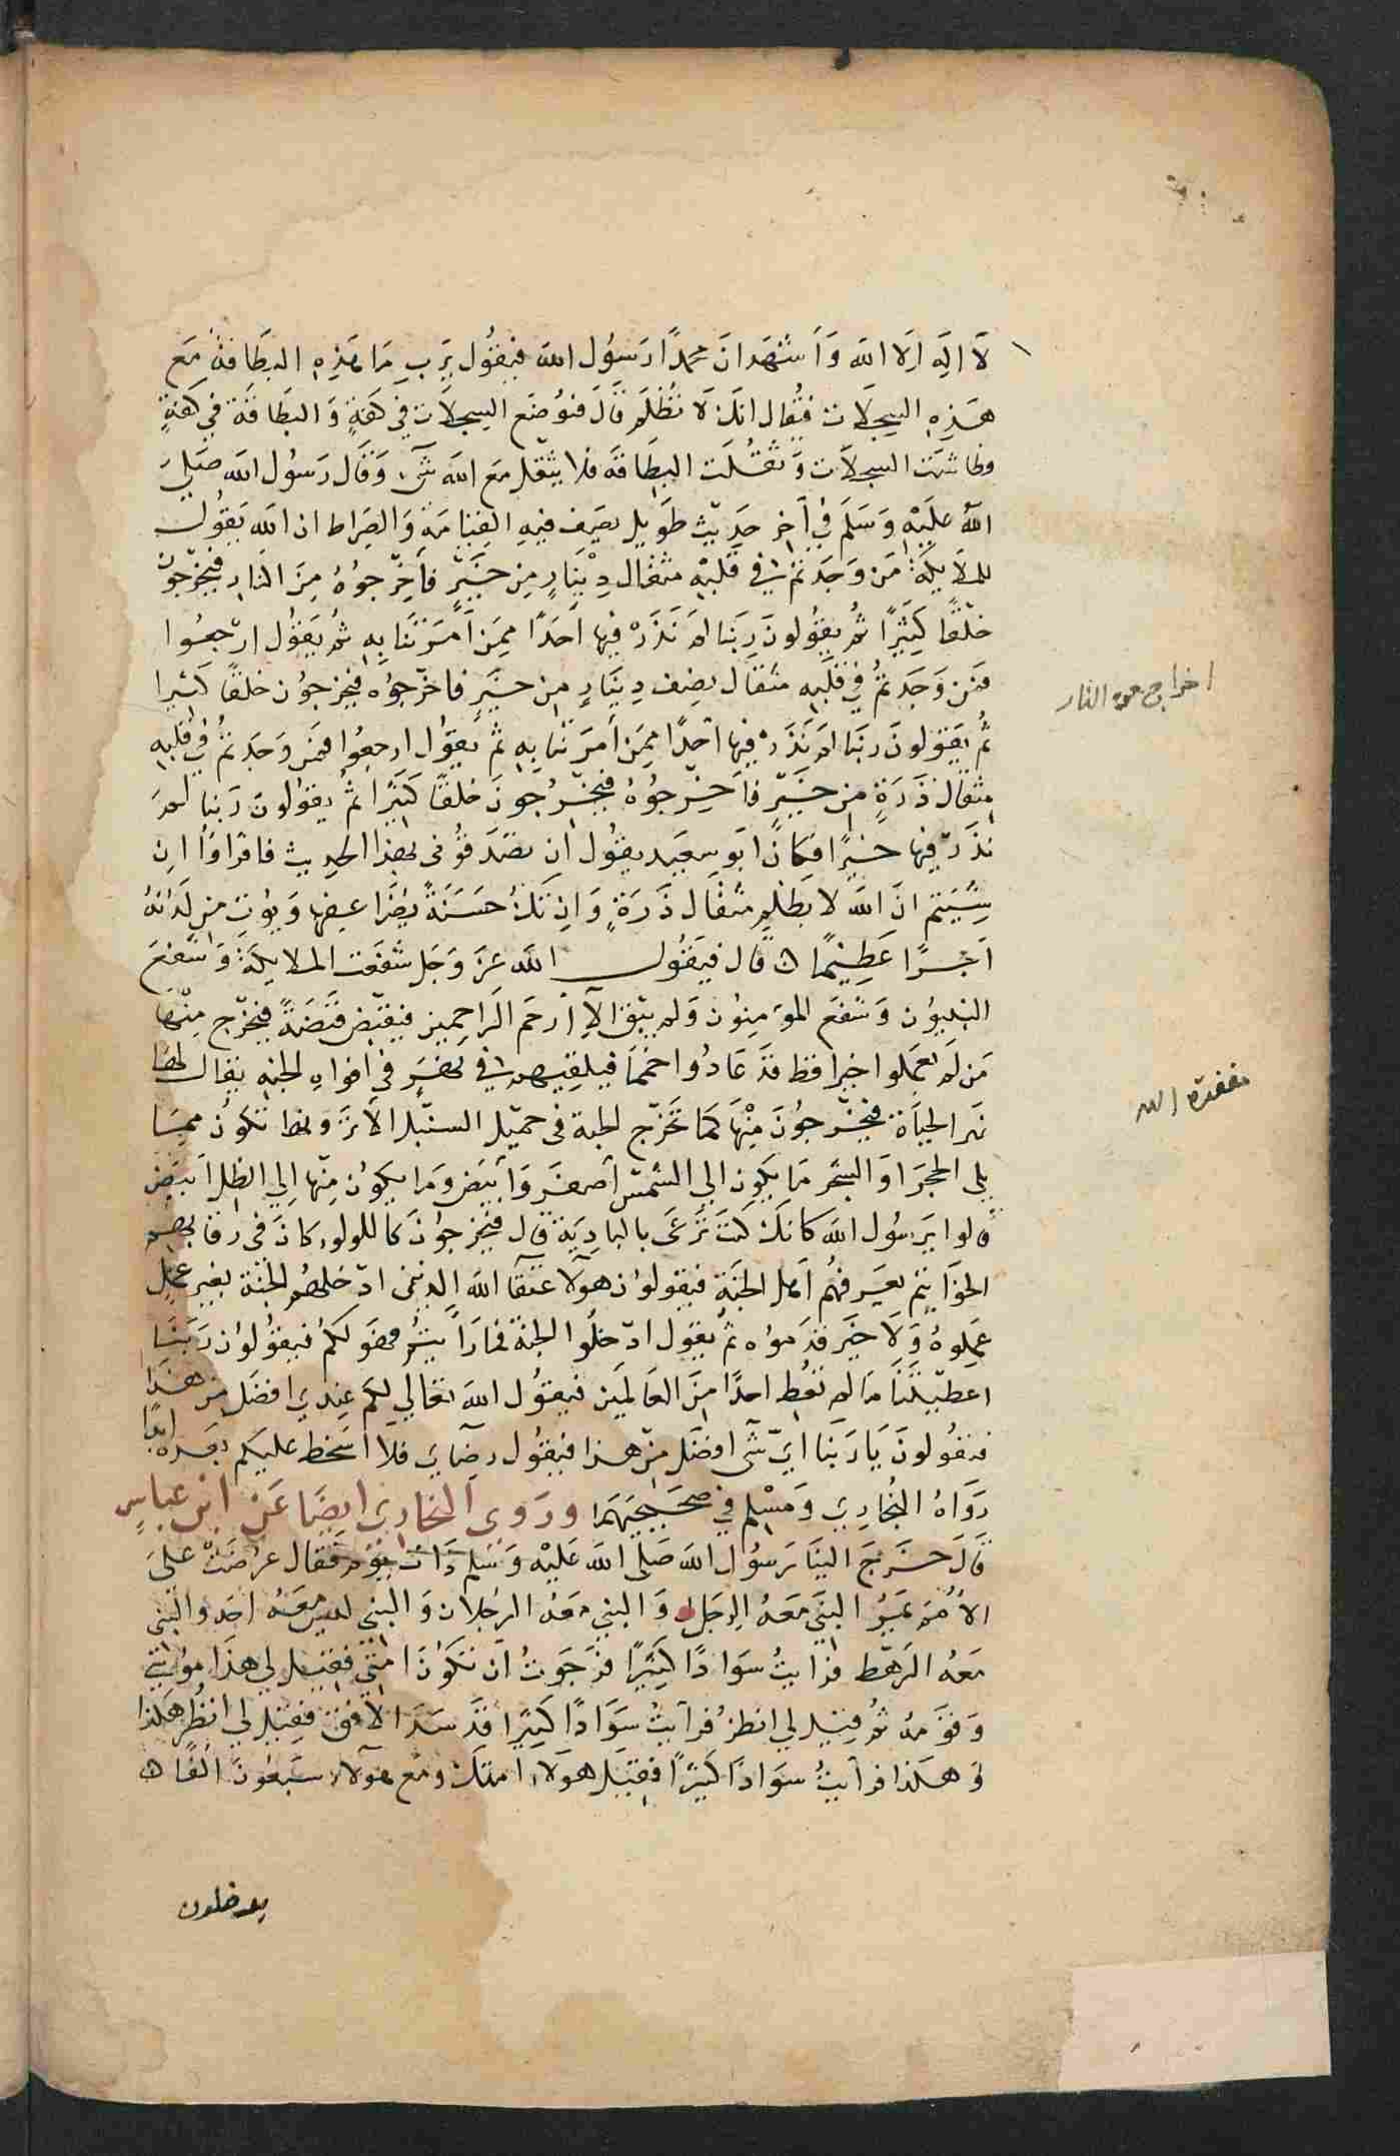 لَا الَه اِلَا الله وَاَشْهَد انَ محمدًا رَسوُل الله فيقُول يَرَبِ مَا هَذِهِ البِطَاقَه مَع
هَذِهِ السِجِلَات فيُقال انكَ لَا تُظْلَم قَالَ فتوُضَع السِجِلَات في كَفةٍ وَالبطَاقَة في كَفةٍ
وطاشَت السِجلاَت وَثَقُلَت البِطَاقَه فلا يثْقل مَع الله شَى وَقَال رَسوُل الله صَلىَ
اللهُ عَليْهِ وَسَلمَ في آخِر حَدِيثٍ طَوِيل يصِف فيهِ القِيَامَة وَالصِرَاط ان الله يَقوُل
للملَايكَة مَن وَجَدتمُ في قَلبْهِ مثقال دِيْنَارٍ مِن خَيْرٍ فاَخْرِجوُهُ مِنَ النار فيُخْرِجوُن
خلْقًا كَثِيْرًا ثمُ يقوُلونَ رَبَنا لمَ نَذَرْ فيها اَحَدًا مِمَن اَمَرْتَنا بِهِ ثمُ يَقوُل ارْجعُوا
فمَن وَجَدتمُ في قلبِهِ مثقَال نصِف دِينَارٍ مِن خيَرٍ فاخرْجوُه فيخرجوُن خلقًا كثيرا
ثمُ يَقوُلونَ رَبَنا لمَ نَذَرْ فيها اَحدًا مِمَن اَمَرَتنا بِهِ ثمُ يقوُل ارجعوُا فمَن وَجَدتمُ في قلبِهِ
مِثقَال ذَرَةٍ مِن خَيْرٍ فاَخْرِجوُهُ فيخْرُجونَ خلقًا كَثيرًا ثمُ يقوُلونَ رَبنا لمَ
نَذَرْ فيها خيرًا فكَانَ اَبو سِعَيد يقوُل ان لم تصَدقوُنى بهذا الحديث فاقراوُا ان
شِئتم انَ الله لا يظْلِم مثقَال ذَرَةٍ وَان تَكُ حَسَنَةً يُضاعفها وَيوُت مِن لَدُنهُ
اَجْرًا عَظِيمًا قال فيَقُول الله عزَ وَجَل شفَعَت الملايكَة وَشفعَ
النبيوُن وَشفعَ المؤمِنوُن وَلم يبق الاَ ارحَم الراحِمين فيَقبْض قبْضَةً فيُخْرِج مِنْهَا
مَن لَم يعمَلوا خيرا قط قدَ عَادُوا حُمَمًا فيلقيهِم في نهَر في افواه الجنه يقال لها
نهَر الحيَاة فيخْرجوُنَ مِنْهَا كَمَا تَخرْج الحبة في حمَيْل السيْل الاَ ترَونها تكوُن ممِا
يلى الحجَر اوَ الشجَر مَا يكوُن الى الشمْسِ اصفَر وَابيَض وَمَا يكوُن مِنْها اِلي الظِل ابيَض
قالوا يَرسوُل الله كانكَ كنتَ تَرْعَى بالبادِيَة قال فيخرجوُنَ كاللولوء كانَ في رقابهِم
الخوَاتِيم يعَرفهُم اَهل الجنَةِ فيقولوُن هوَلآ عتقآ الله الدنى ادْخلهُم الجنْة بغير عمَلٍ
عَمِلوهُ وَلَا خَيْر قدَموُه ثمُ يقوُل ادْخلُوا الجنْةَ فمارَايتمُ فهوَ لكمُ فيقوُلوُن رَبَنا
اعطيْتَنَا مَا لم تعُط احدًا مِنَ العَالَمين فيقوُل الله تعَالي لكم عِندِي افضَل مِن هذَا
فيقولونَ يَا رَبَنا ايّ شَى افضَل مِن هذا فيقُول رضَاى فلا اَسخط عليكم بعَدهُ ابدًا
رَوَاهُ البخَارِي وَمسْلِم في صحَيحَيهمَا ورَوى البخَارِى ايضًا عَن ابن عباسٍ
قَالَ خَرَجَ الينَا رَسوُل الله صَلى الله عَليْه وَسَلم ذَات يوَم فَقال عرُضَتْ عَلىَ
الاُمَم يَمُرُ النبَي مَعهُ الرَجل وَالنبي مَعَه الرَجُلان وَالنبي لَيس مَعَهُ احَد وَالنبي
مَعَه الرَهْط فرَايتُ سوَادًا كَثِيْرًا فرَجَوتُ اَن تكوُن امتّي فقيل لي هذَا موُسى
وَقومَهُ ثمُ قيل لي انظرُ فرآيتُ سَوَادًا كثِيرًا قدَ سَدَ الافُق فقيل لي انظُر هَكذا
وَهكذا فرآيتُ سوَادًا كَثيرًا فقيَل هوَلآء امتكَ ومَع هوَلآء سَبعُونَ الفًا
يدخلون
اخراج من النار
مغفرة الله